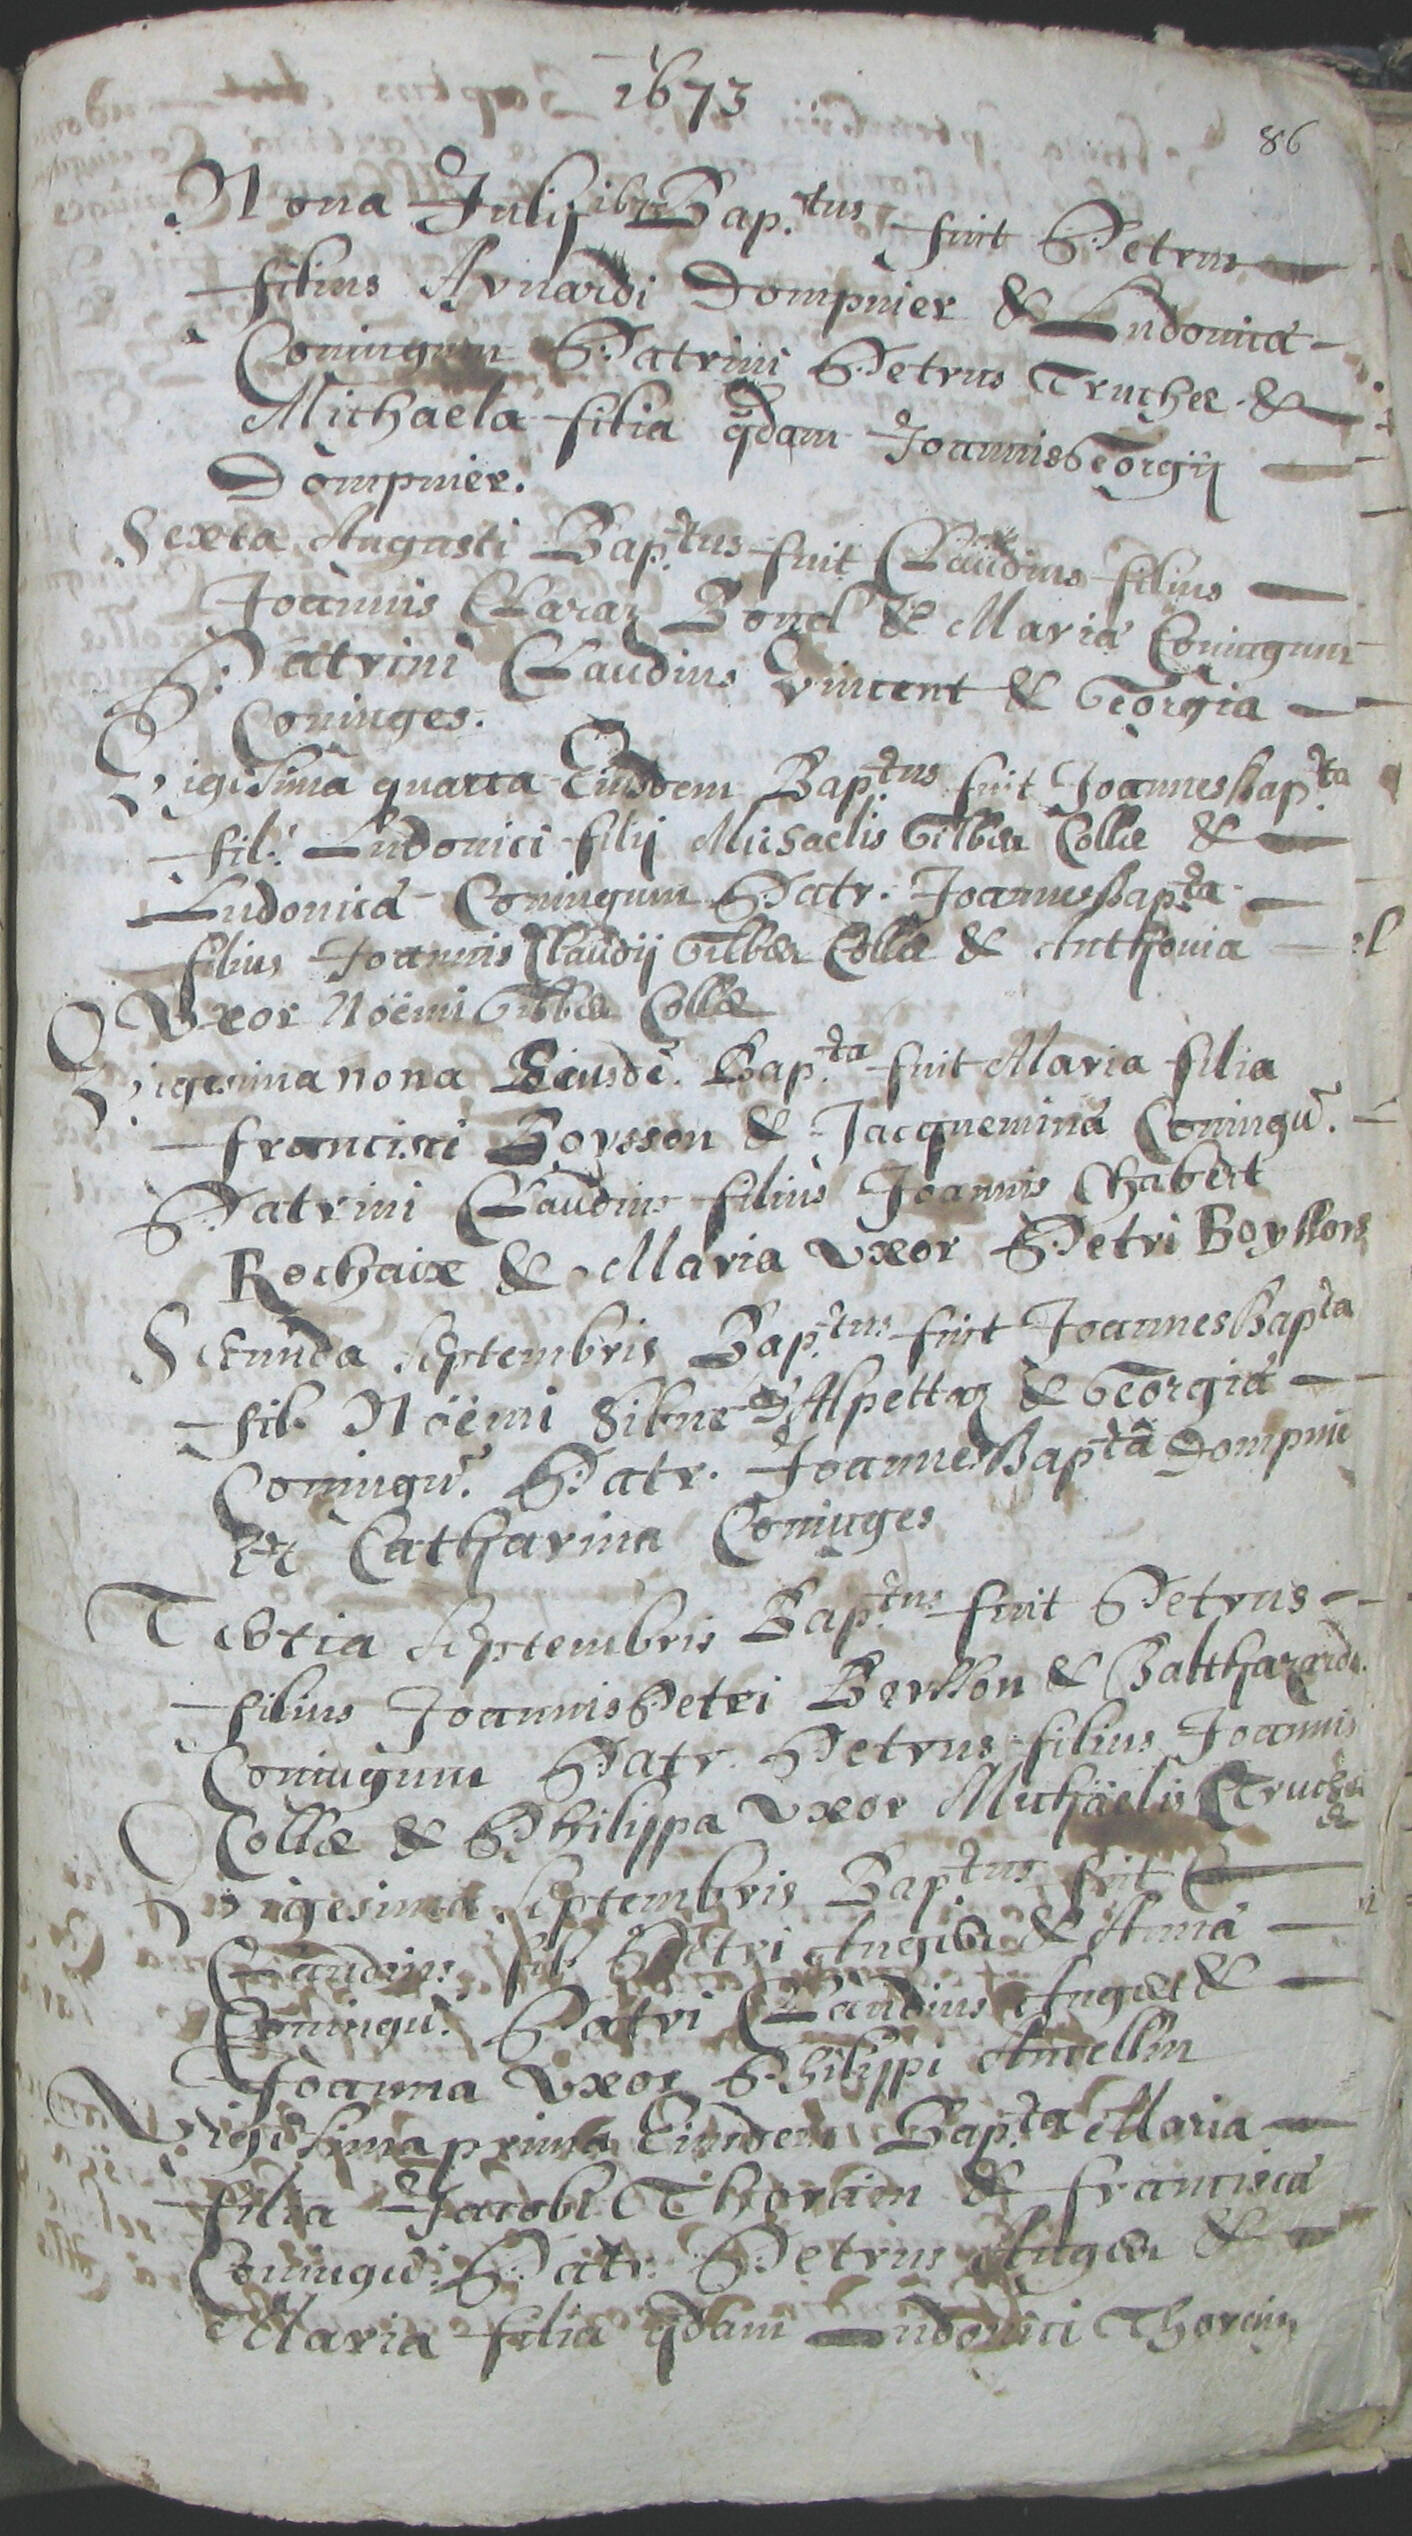 1673
86
Nona Julij Bap.tus fuit Petrus
filius Aynardi Dompnier & Ludovica
Coniugum Patrini Petrus Truchet &
Michaela filia qdam Joannis Georgij
Dompnier.
Sexta Augusti Bap.tus fuit Claudius filius
Joannis Claraz Bond & Maria Coniugum
Patrini Claudius Vincent & Georgia
Coniuges.
Vigesima quarta Eiusdem Bap.tus fuit Joannes Bap.ta
fil. Ludovici filij Michaelis Gilbert Collie &
Ludovica Coniugum Patr. Joannes Bap.ta
filius Joannis Claudij Gilbert Collie & Anthonia
Uxor Noëmi Gilbert Collie
Vigesima nona Eiusdē. Bap.ta fuit Maria filia
francisci Boysson & Jacquemina Coniugū.
Patrini Claudius filius Joannis Chabert
Rochaix & Maria uxor Petri Boysson
Secunda Septembris Bap.tus fuit Joannes Bap.ta
fil. Noëmi Alpettaz & Georgia
Coniugū. Patr. Joannes Bapta Dompnie
Et Catharina Coniuges
Tertia Septembris Bap.tus fuit Petrus
filius Joannis Petri & Balthazarda
Coniugum Patr. Petrus filius Joannis
Collie & Philippa uxor Michaelis Truchet
Vigesima Septembris Bap.tus fuit
Claudius fil. Petri Augert & Anna
Coniugū. Patri Claudius Augert &
Joanna uxor Philippi
Vigesima prima Eiusdem Bap.ta Maria
filia Jacobi Thorain & francisca
Coniugū. Patr. Petrus Augert &
Maria filia qdam Ludovici Thorain